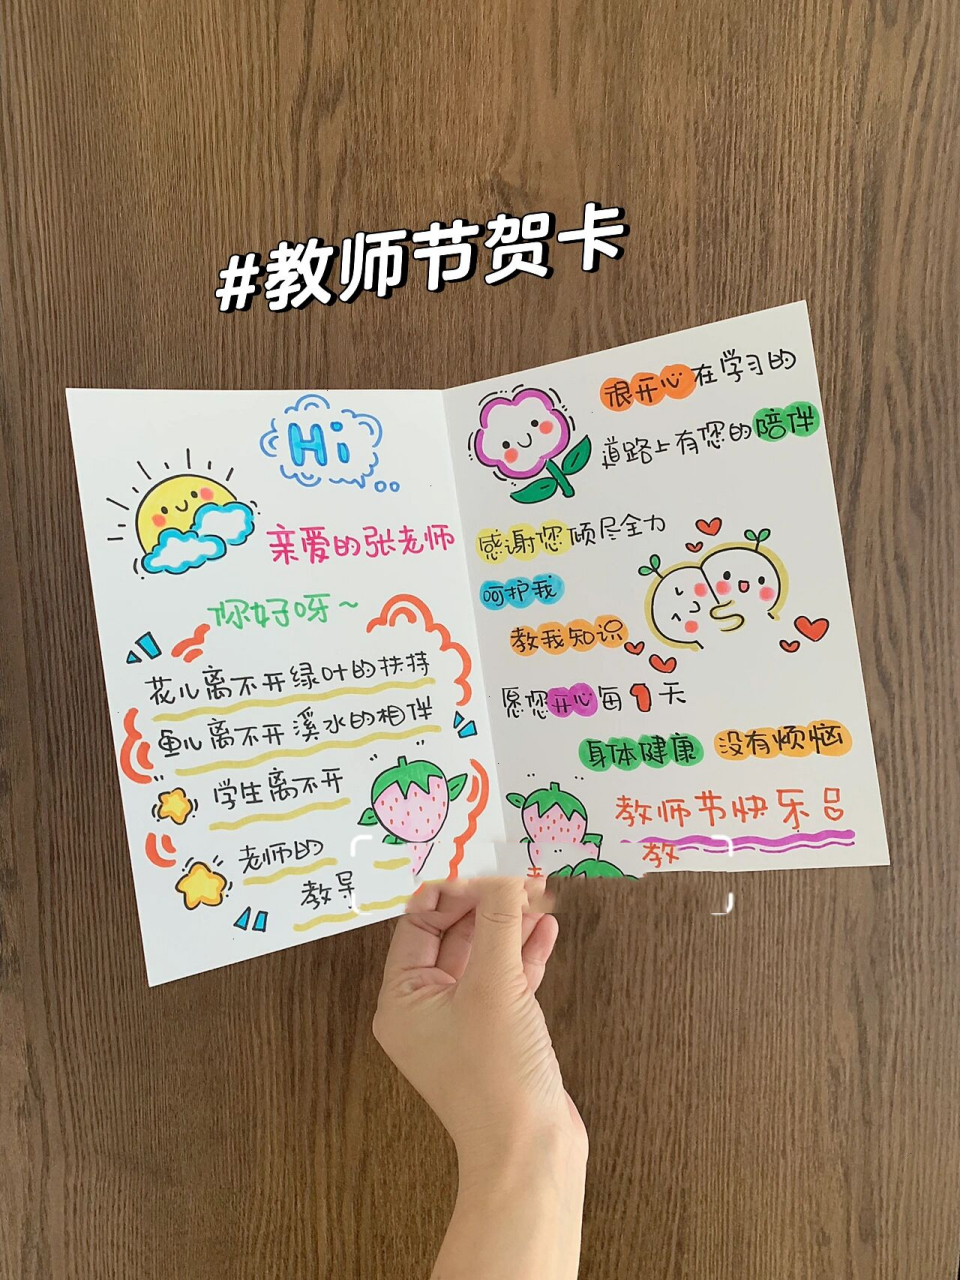 #教师节贺卡
Hi
亲爱的张老师
你好呀~
花儿离不开绿叶的扶持
鱼儿离不开溪水的相伴
学生离不开
老师的
教导
很开心在学习的
道路上有您的陪伴
感谢您倾尽全力
呵护我
教我知识
愿您开心每1天
身体健康 没有烦恼
教师节快乐
教